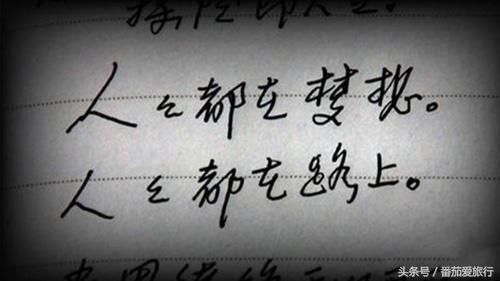 人々都在梦想。
人々都在路上。
头条号 / 番茄爱旅行